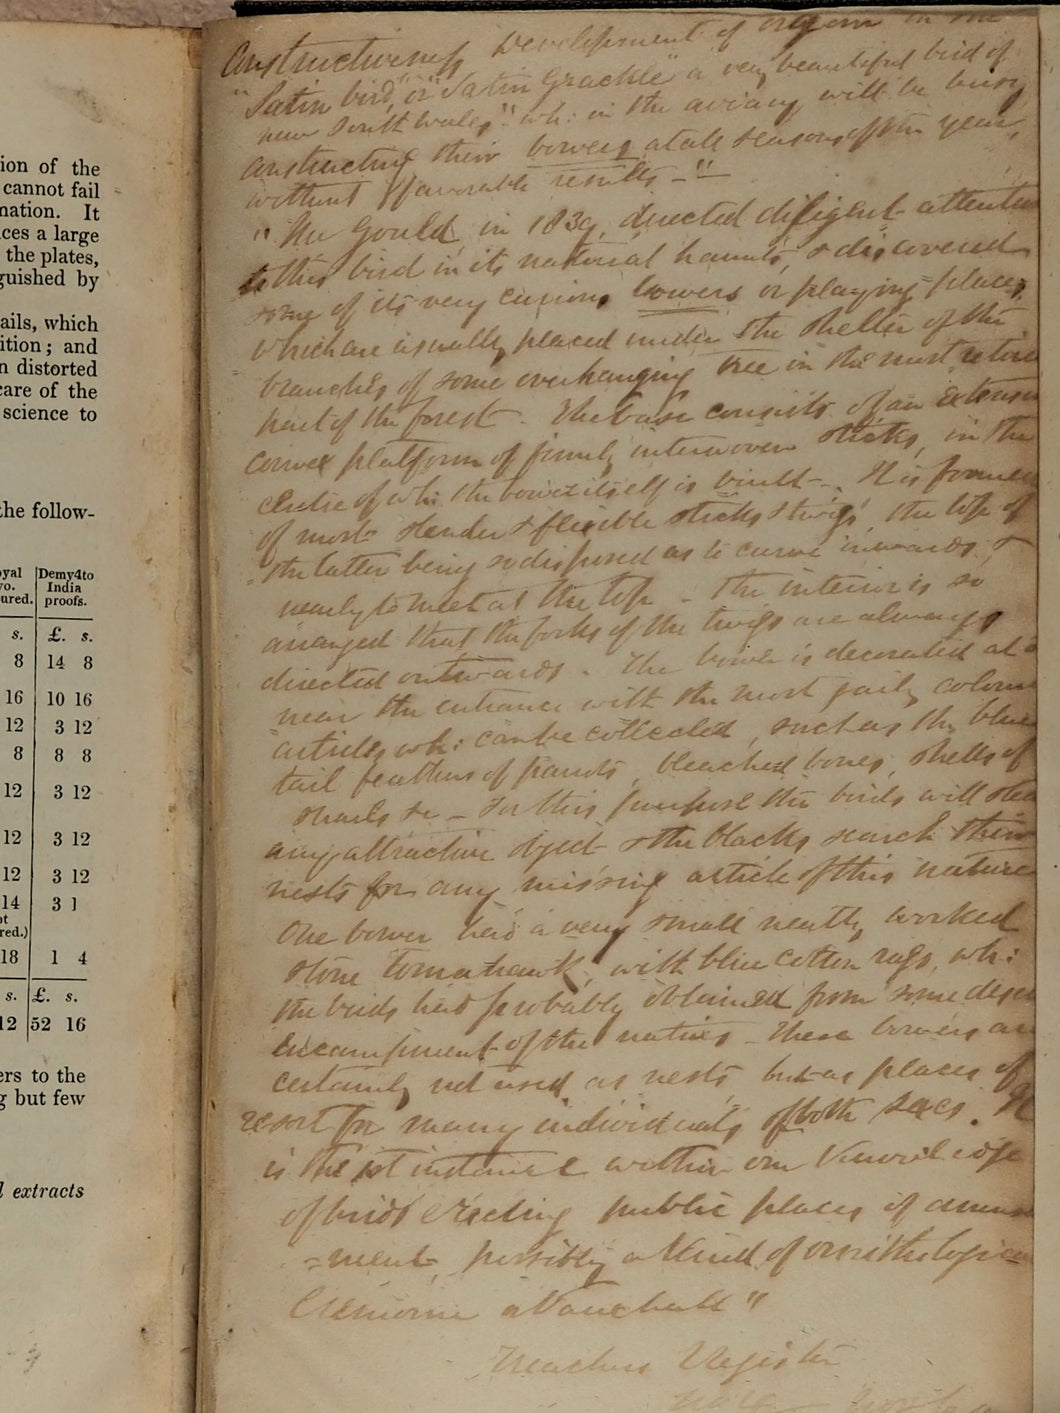 ion of the
cannot fail
nation. It
ces a large
the plates,
guished by
ails, which
ition; and
n distorted
care of the
science to
the follow-
oyal Demy4to
vo. India
ured. proofs.
s. £. s.
8 14 8
16 10 16
12 3 12
8 8 8
12 3 12
12 3 12
12 3 12
14 3 1
ot
red.)
18 1 4
s. £. s.
12 52 16
ers to the
g but few
l extracts
Constructiveness Development of organ in the
"Satin bird, or "Satin Grackle" a very beautiful bird of
new South Wales" wh: in the aviary will be busy
constructing their bowers at all seasons of the year,
without favorable results –"
"Mr Gould, in 1839, directed diligent attention
to this bird in its natural haunts, & discovered
some of its very curious bowers or playing=places,
which are usually placed under the shelter of the
branches of some overhanging tree in the most retired
part of the forest – The base consists of an extensive
convex platform of firmly interwoven sticks, in the
centre of wh: the bower itself is built –. It is formed
of most slender & flexible sticks & twigs, the tips of
the latter being so disposed as to curve inwards, &
nearly to meet at the top – the interior is so
arranged that the forks of the twigs are always
directed outwards. The bower is decorated at &
near the entrance with the most gaily colored
articles wh: can be collected, such as the blue
tail feathers of parrots, bleached bones, shells of
snails &c – For this purpose the birds will steal
any attractive object & the blacks search their
nests for any missing article of this nature
One bower had a very small neatly worked
stone tomahawk, with blue cotton rags, wh:
the birds had probably obtained from some
encampment of the natives – These bowers are
certainly not used as nests, but as places of
resort for many individuals of both sexes. It
is the 1st instance within our knowledge
of birds erecting public places of amuse
=ment, possibly a kind of ornithological
Cremorne a Vauxhall"
Register